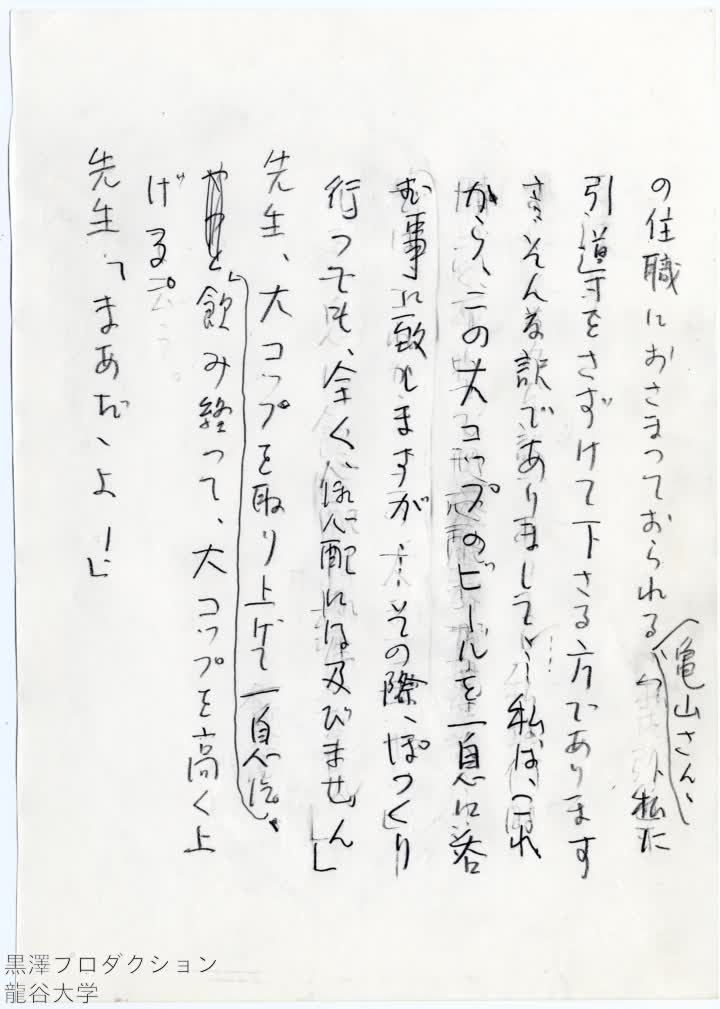 の住職におさまっておられる
亀山さん、
私に
引導をさずけて下さる方であります
さて、そんな訳でありまして…私は、これ
から、この大コップのビールを一息に呑
む事に致しますが…その際、ぽっくり
行っても、全く御心配には及びません」
先生、大コップを取り上げて一息に、
飲み終って、大コップを高く上
げる
先生「まあだゞよ!」
黒澤プロダクション
龍谷大学